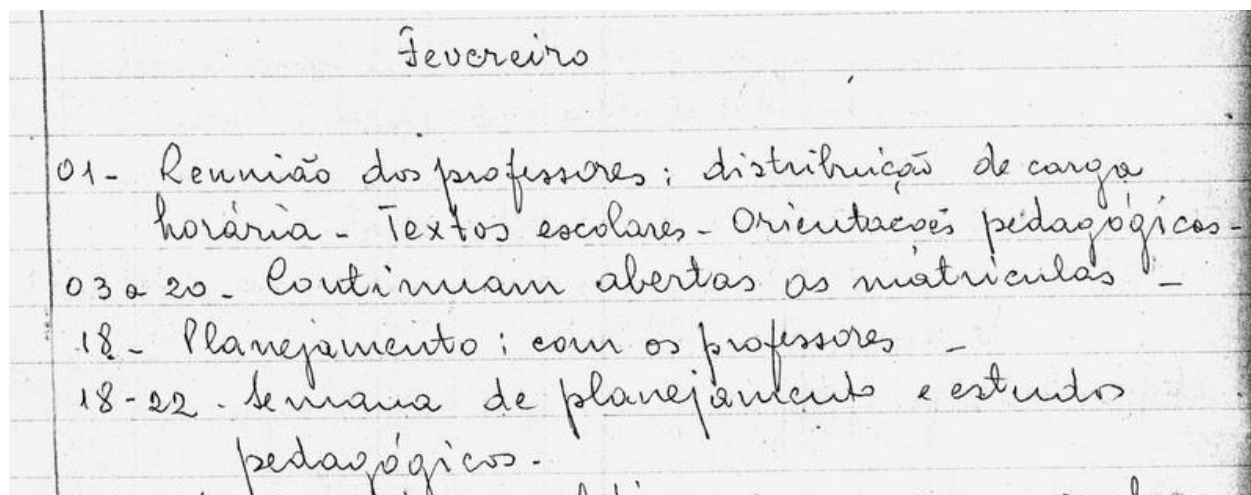 Fevereiro
01- Reunião dos professores: distribuição de carga
horária - Textos escolares - Orientações pedagógicas -
03 a 20 - Continuam abertas as matrículas -
18 - Planejamento: com os professores -
18-22 - Semana de planejamento e estudos
pedagógicos.